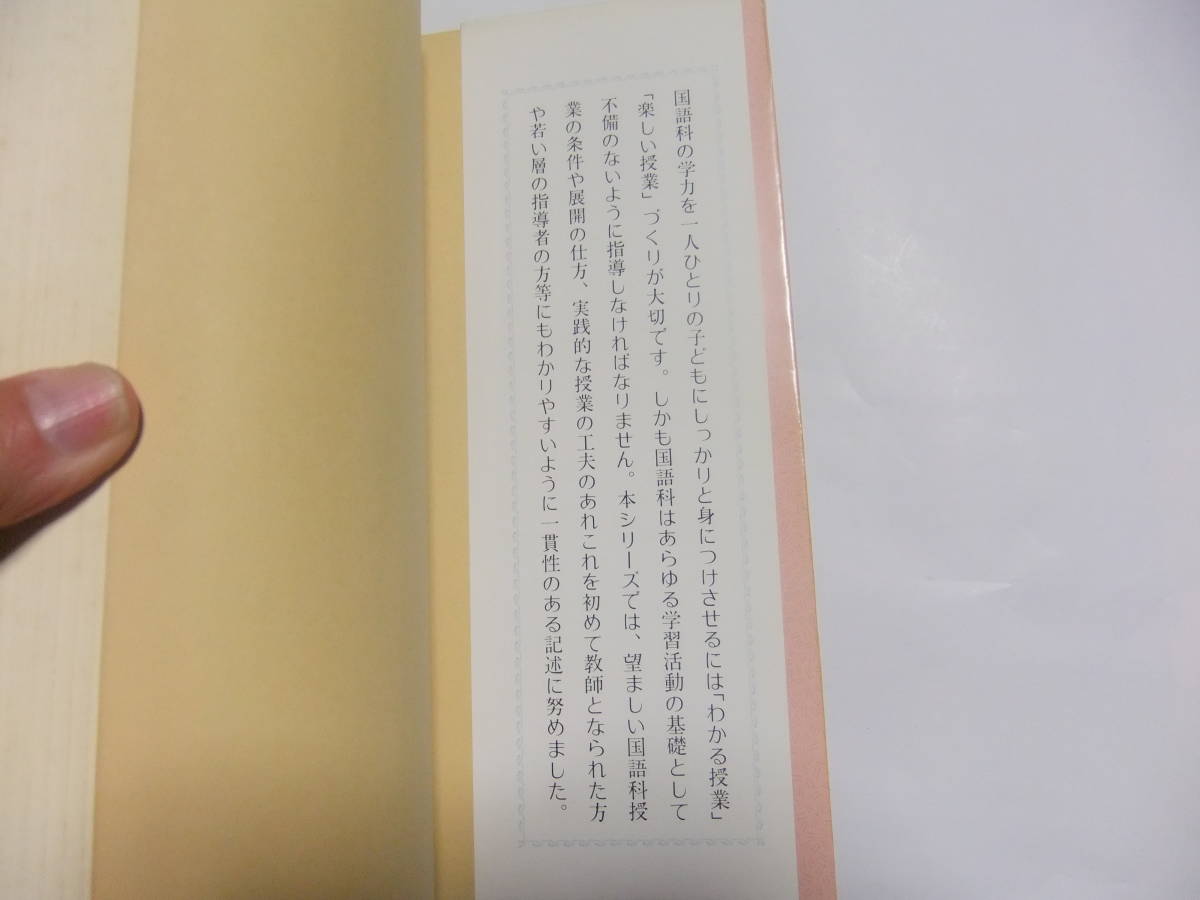 国語科の学力を一人ひとりの子どもにしっかりと身につけさせるには「わかる授業」
「楽しい授業」づくりが大切です。しかも国語科はあらゆる学習活動の基礎として
不備のないように指導しなければなりません。本シリーズでは、望ましい国語科授
業の条件や展開の仕方、実践的な授業の工夫のあれこれを初めて教師となられた方
や若い層の指導者の方等にもわかりやすいように一貫性のある記述に努めました。